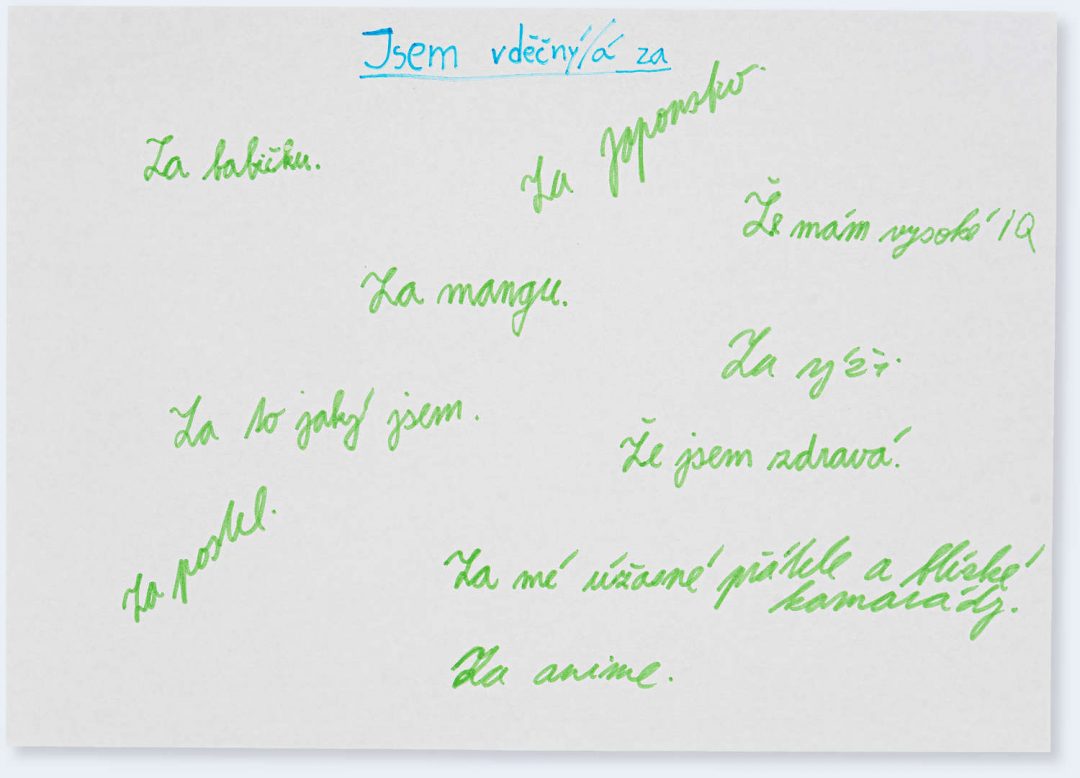 Jsem vděčný/á za
Za babičku.
Za Japonsko.
Že mám vysoké IQ
Za mangu.
Za rýži.
Za to jaký jsem.
Že jsem zdravá.
Za postel.
Za mé úžasné přátele a blíské
kamarády.
Za anime.